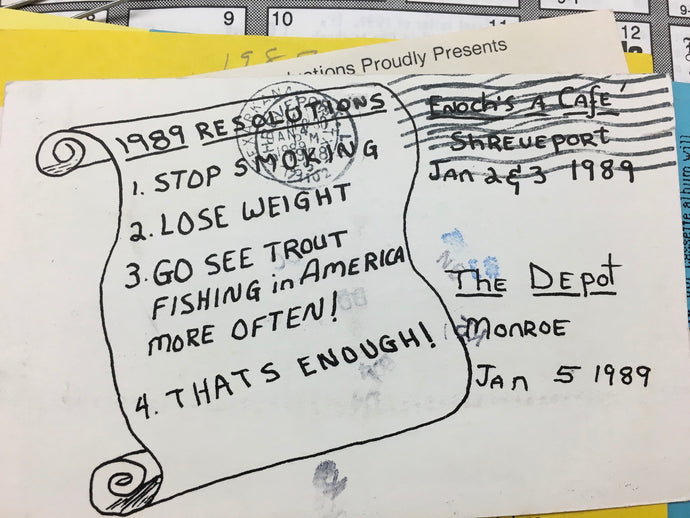 9 10
12
198
ctions Proudly Presents
1989 RESOLUTIONS
1. STOP SMOKING
2. LOSE WEIGHT
3. GO SEE TROUT
FISHING in AMERICA
MORE OFTEN!
4. THATS ENOUGH!
Enoch's A Café
SHREVEPORT
JAN 2 & 3 1989
The Depot
MONROE
JAN 5 1989
cassette album will